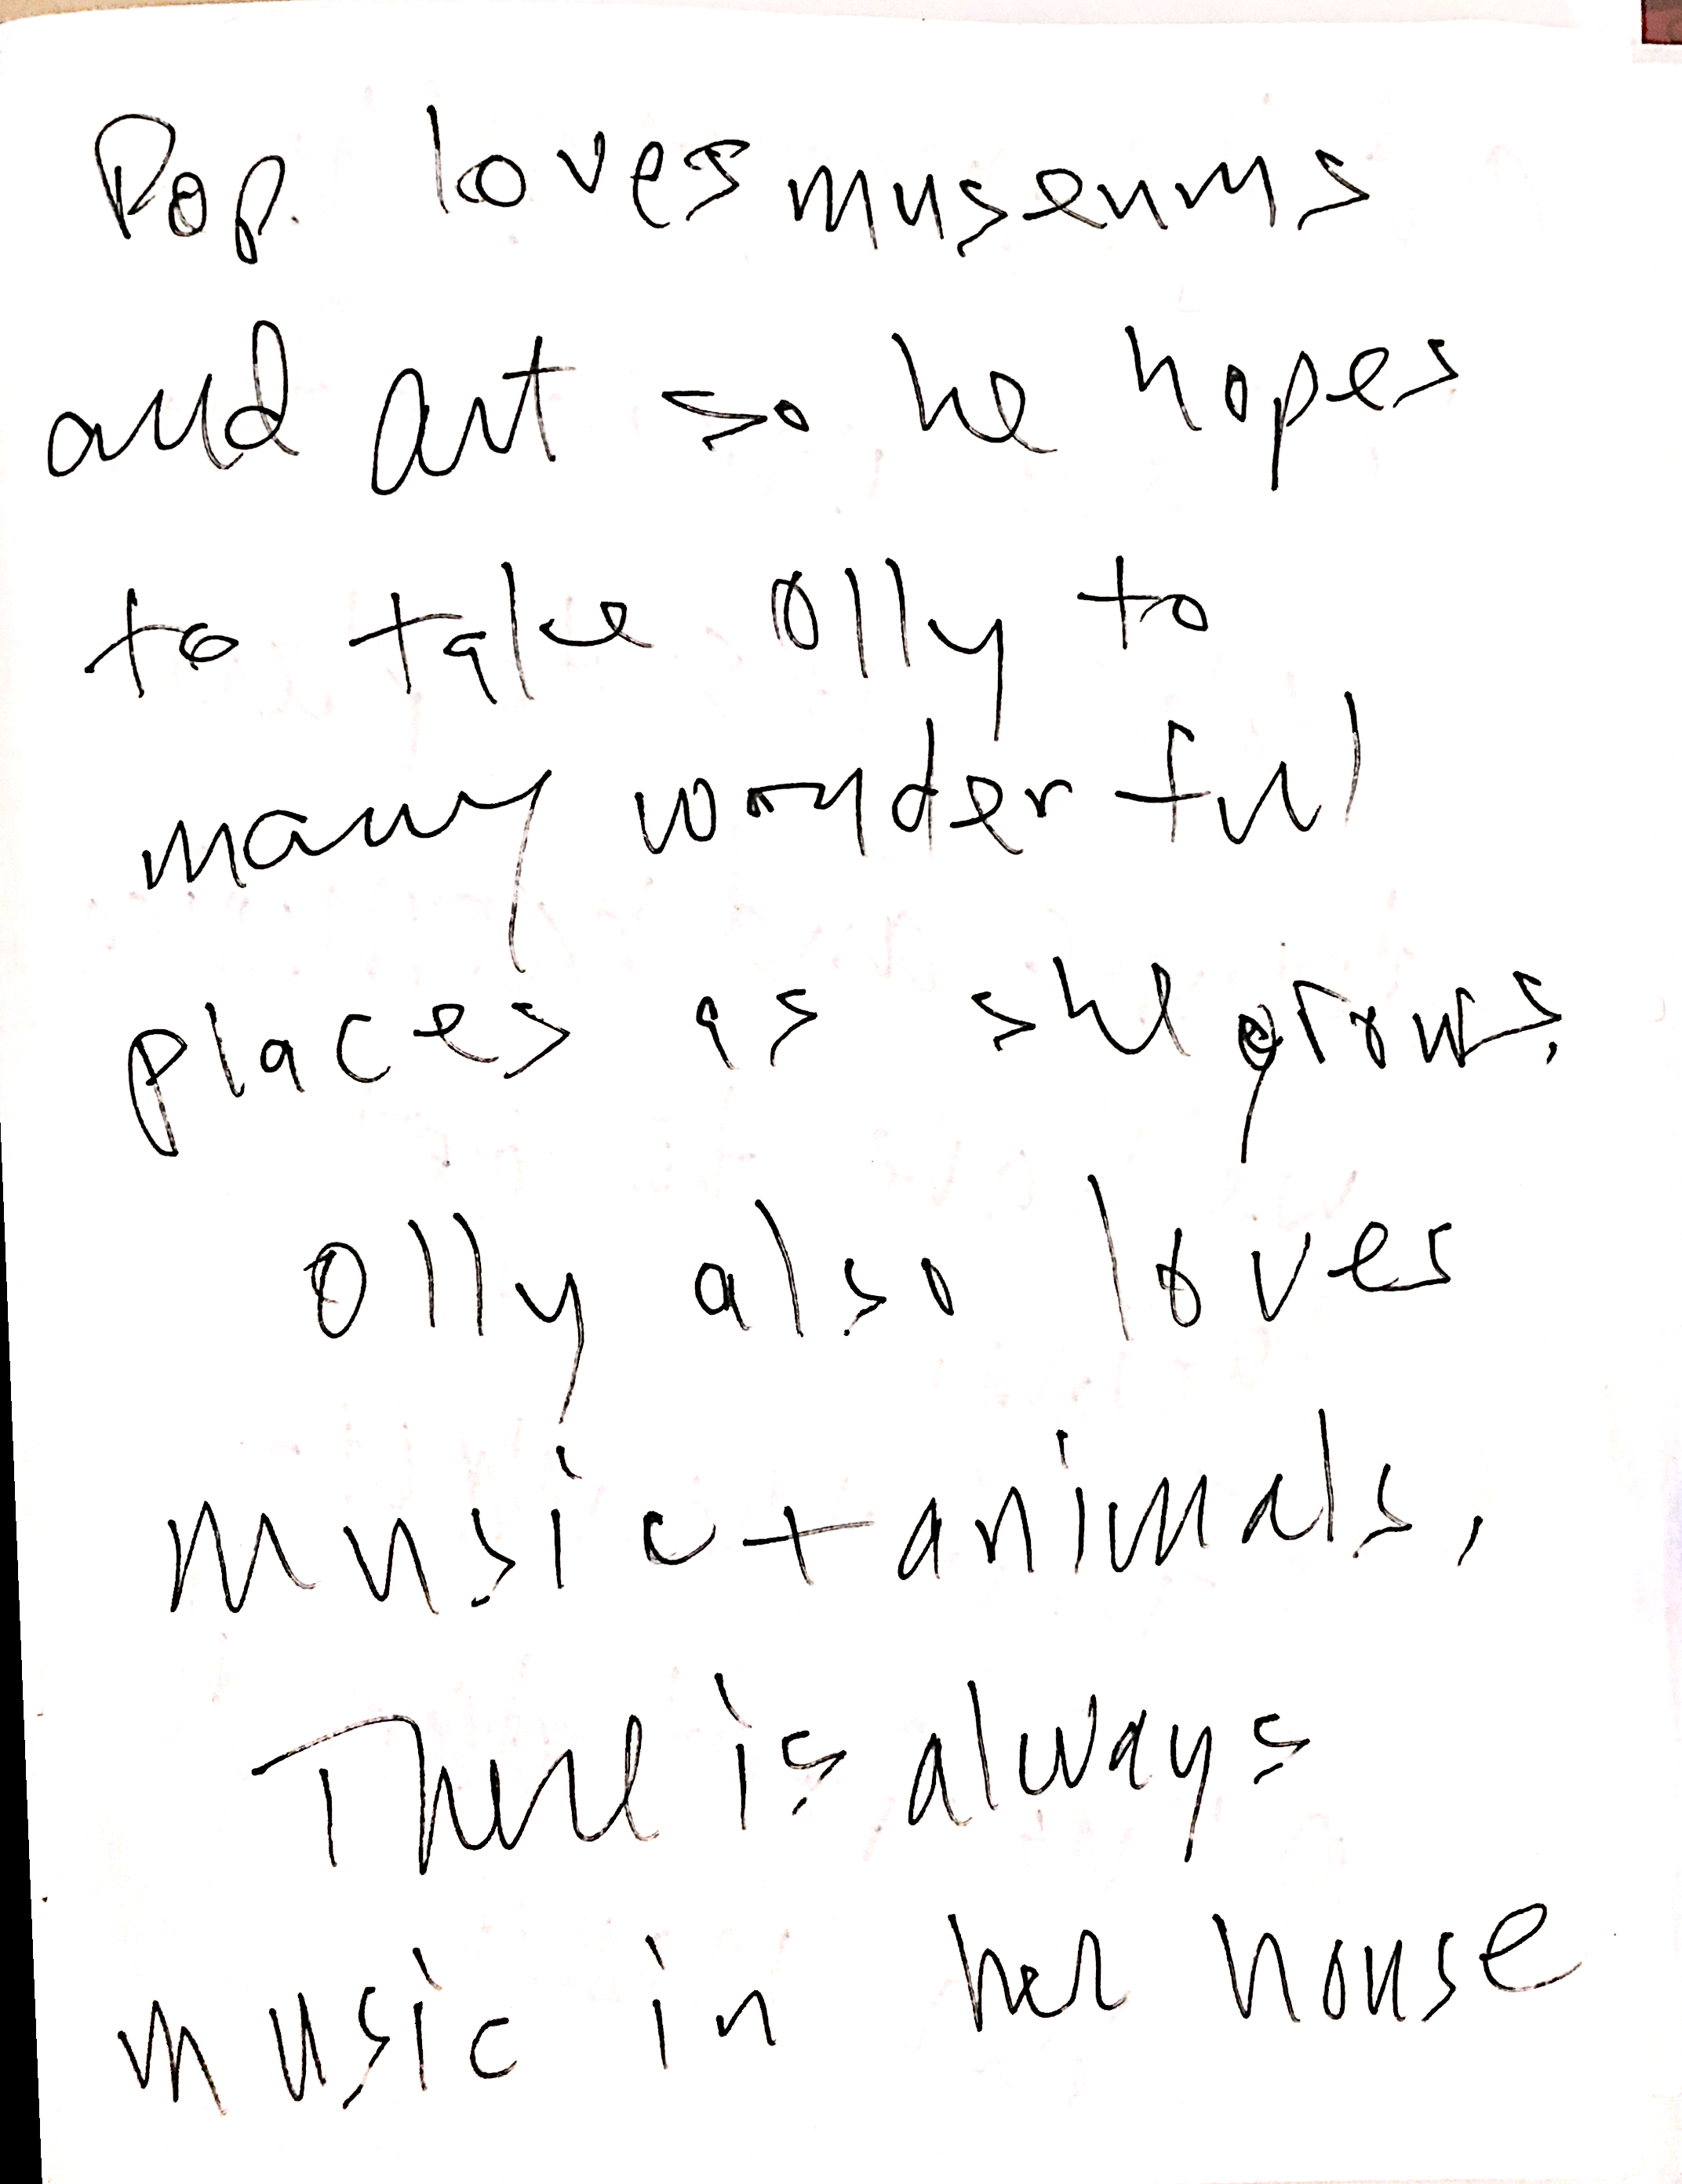 Pop loves museums
and art so he hopes
to take Olly to
many wonderful
places as she grows,
Olly also loves
music + animals,
There is always
music in her house